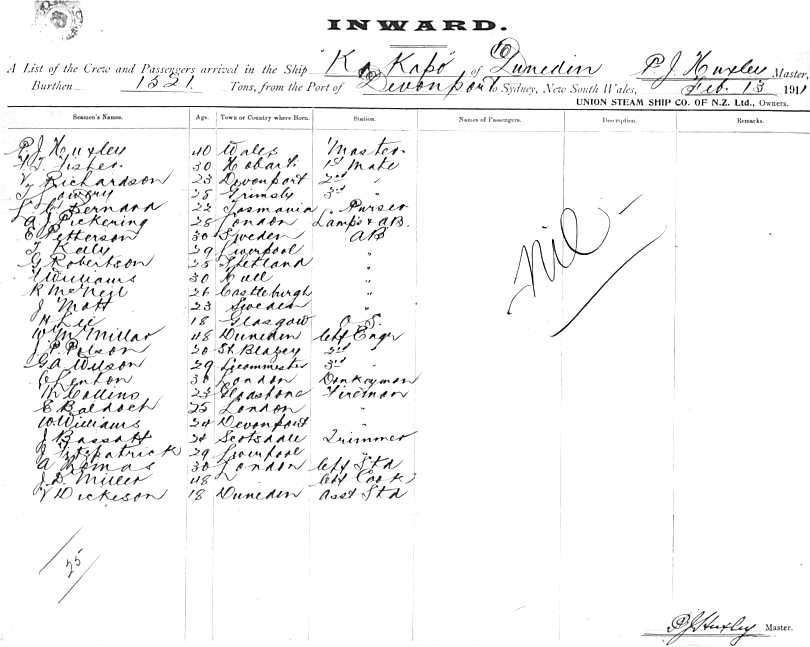 INWARD.
A List of the Crew and Passengers arrived in the Ship "Ka Kapo" of Dunedin P. J. Huxley Master,
Burthen 1521 Tons, from the Port of Devonport to Sydney, New South Wales, Feb. 13 1911
UNION STEAM SHIP CO. OF N.Z. Ltd., Owners.
Seamen's Names. Age. Town or Country where Born. Station. Names of Passengers. Description. Remarks.
P. J. Huxley 40 Wales Master
Fisher 30 Hobart 1st Mate
Richardson 23 Devonport 2nd "
Lowery 28 Grimsby 3rd "
Bernard 22 Tasmania Purser
A J Pickering 28 London Lamps & AB.
E Petterson 30 Sweden AB
T Kelly 29 Liverpool "
G Robertson 25 Shetland "
Williams 30 Hull "
R McNeil 26 Castleburgh "
J Mott 23 Sweden "
H Lee 18 Glasgow O.S.
W M Millar 48 Dunedin Chf Engr
J P Polson 30 St Blazey 2nd "
G A Wilson 29 Leominster 3rd "
Lenton 30 London Donkeyman
Collins 23 Gladstone Fireman
E Baldock 25 London "
W Williams 34 Devonport "
J Bassett 24 Scotsdale Trimmer
Fitzpatrick 29 Liverpool "
A Thomas 30 London Chf Std
J. D. Miller 48 " Chf Cook
V Dickeson 18 Dunedin Asst Std
nil
25
P. J. Huxley Master.